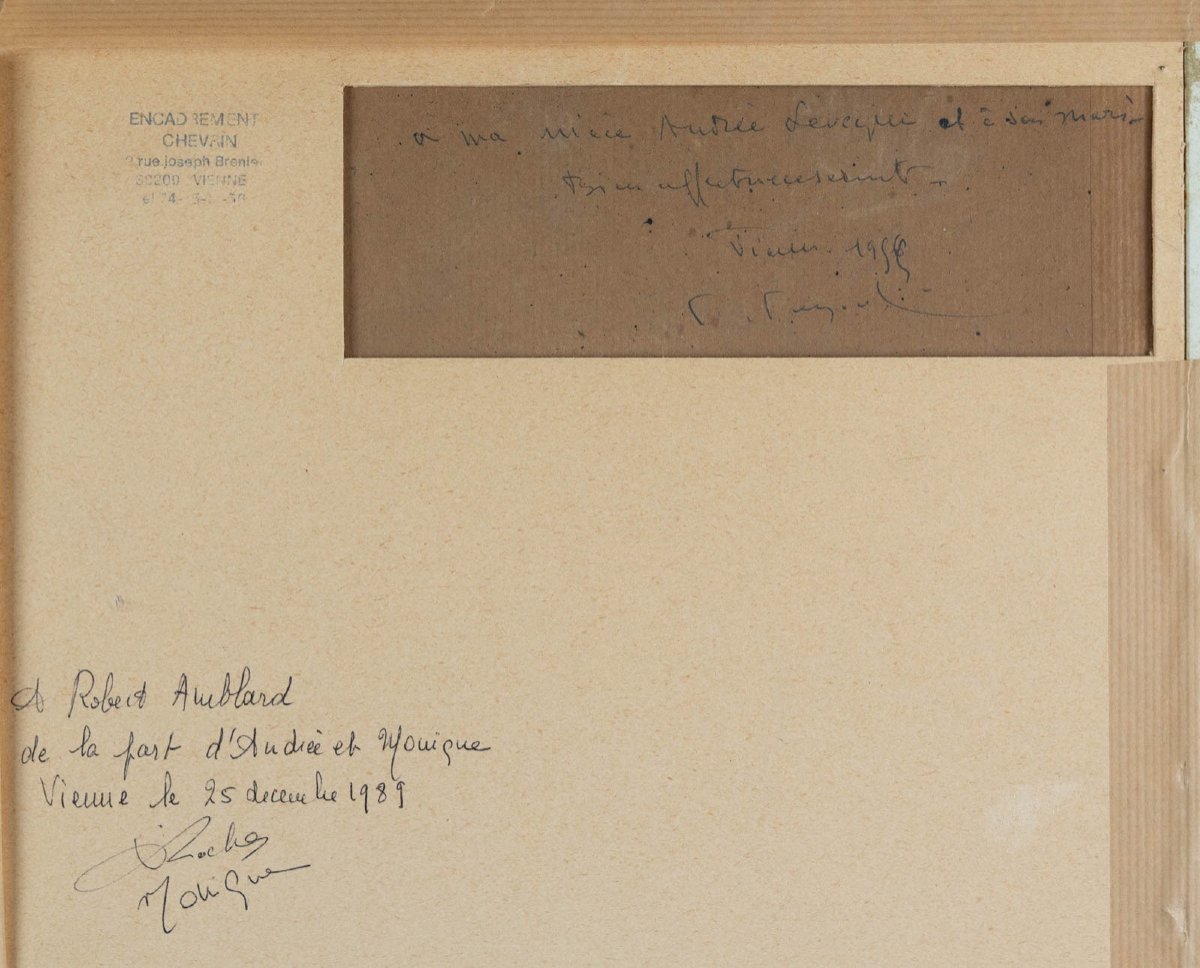 ENCADREMENT
CHEVRIN
rue Joseph Brenier
VIENNE
à ma nièce Andrée et à son mari
bien affectueusement
A Robert Amblard
de la part d'Andrée et Monique
Vienne le 25 decembre 1989
Monique